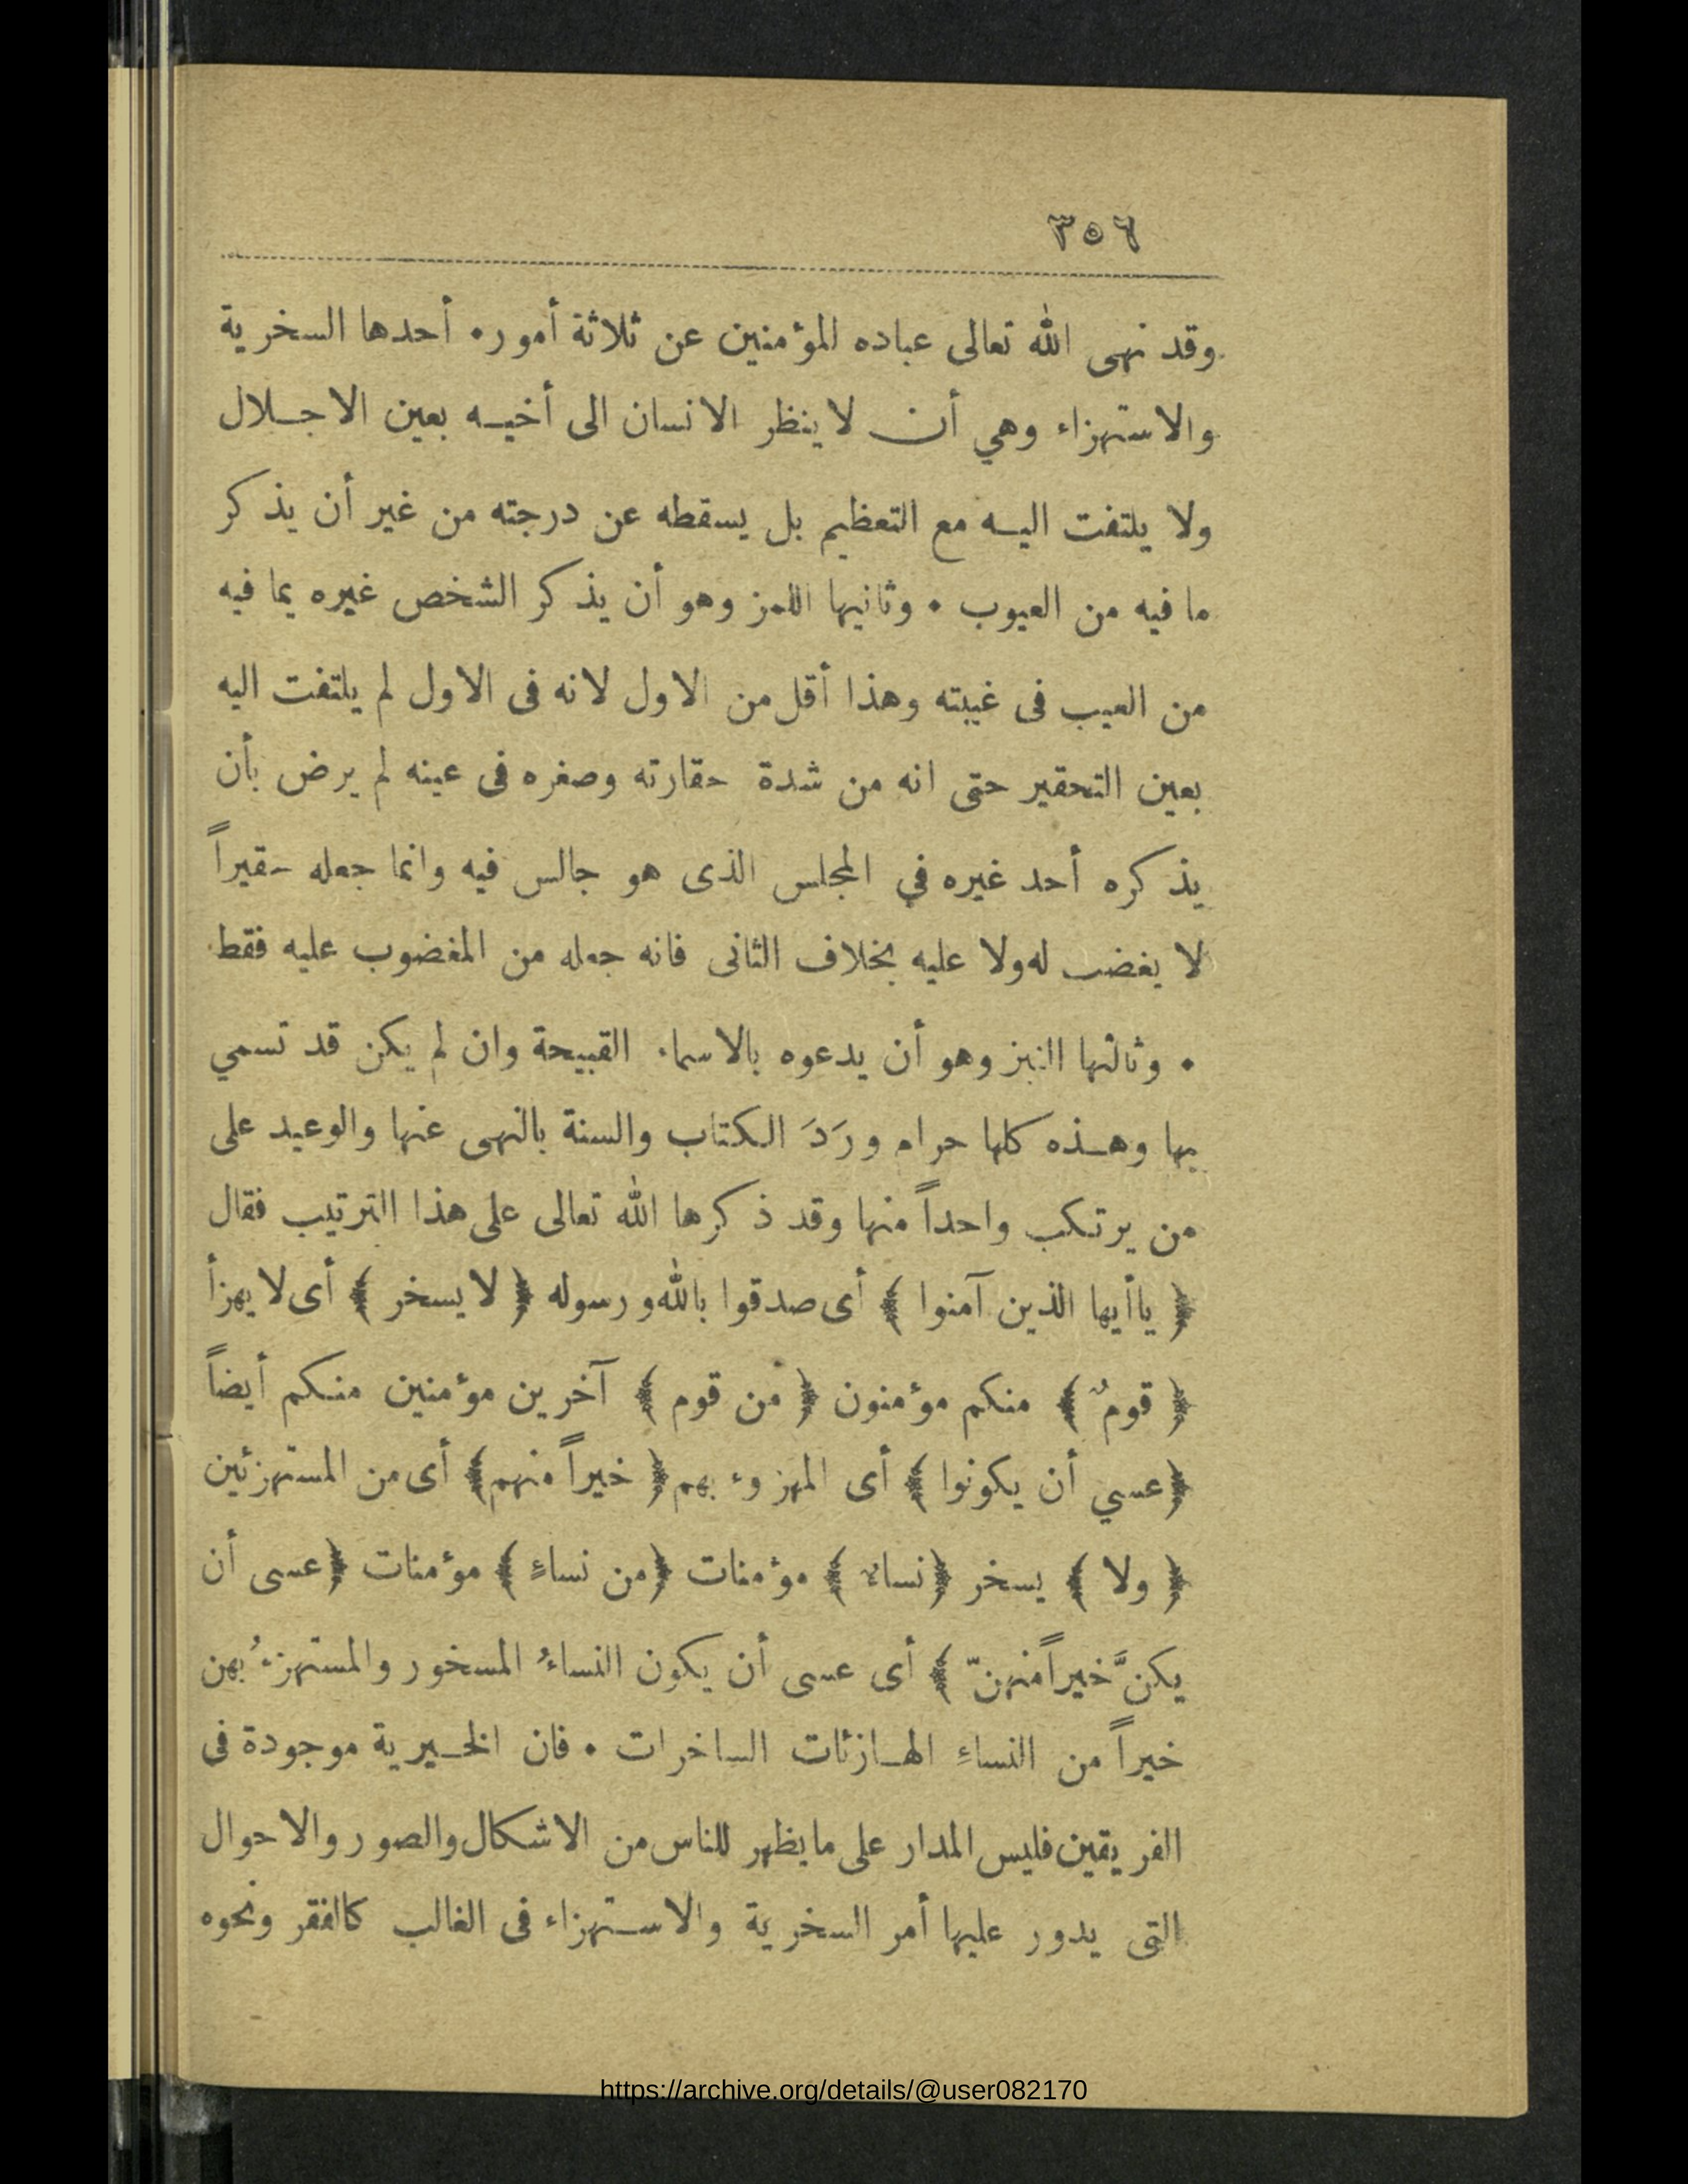 ٣٥٦
وقد نهى الله تعالى عباده المؤمنين عن ثلاثة أمور • أحدها السخرية
والاستهزاء وهي أن لا ينظر الانسان الى أخيه بعين الاجلال
ولا يلتفت اليه مع التعظيم بل يسقطه عن درجته من غير أن يذكر
ما فيه من العيوب • وثانيها اللمز وهو أن يذكر الشخص غيره بما فيه
من العيب فى غيبته وهذا أقل من الاول لانه فى الاول لم يلتفت اليه
بعين التحقير حتى انه من شدة حقارته وصغره فى عينه لم يرض بأن
يذكره أحد غيره في المجلس الذى هو جالس فيه وانما جعله حقيراً
لا يغضب له ولا عليه بخلاف الثانى فانه جعله من المغضوب عليه فقط
• وثالثها النبز وهو أن يدعوه بالاسماء القبيحة وان لم يكن قد تسمي
بها وهذه كلها حرام ورَدَ الكتاب والسنة بالنهى عنها والوعيد على
من يرتكب واحداً منها وقد ذكرها الله تعالى على هذا الترتيب فقال
﴿ ياأيها الذين آمنوا ﴾ أى صدقوا بالله ورسوله ﴿ لا يسخر ﴾ أى لا يهزأ
﴿ قومٌ ﴾ منكم مؤمنون ﴿ من قوم ﴾ آخرين مؤمنين منكم أيضاً
﴿عسي أن يكونوا ﴾ أى المهزوء بهم ﴿ خيراً منهم﴾ أى من المستهزئين
﴿ ولا ﴾ يسخر ﴿نساءٌ ﴾ مؤمنات ﴿من نساءٍ ﴾ مؤمنات ﴿عسى أن
يكنَّ خيراً منهنّ ﴾ أى عسى أن يكون النساءُ المسخور والمستهزءُ بهن
خيراً من النساءِ الهازئات الساخرات • فان الخيرية موجودة فى
الفريقين فليس المدار على ما يظهر للناس من الاشكال والصور والاحوال
التى يدور عليها أمر السخرية والاستهزاء فى الغالب كالفقر ونحوه
https://archive.org/details/@user082170